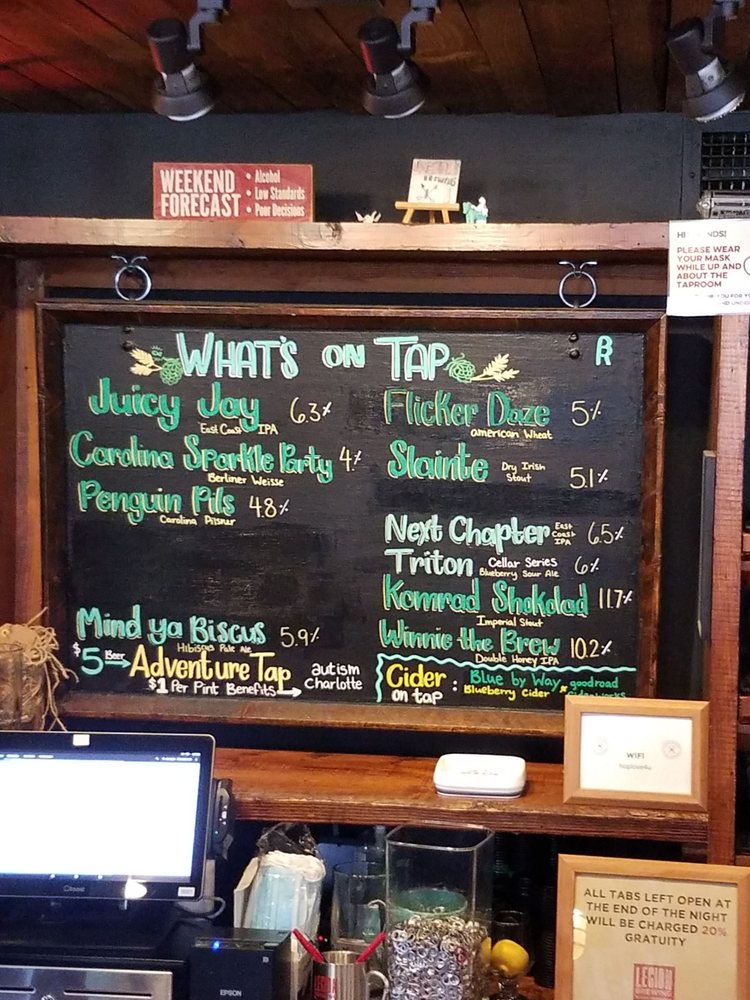 WEEKEND
FORECAST
• Alcohol
• Low Standards
• Poor Decisions
PLEASE WEAR
YOUR MASK
WHILE UP AND
ABOUT THE
TAPROOM
WHAT'S ON TAP
Juicy Jay 6.3%
East Coast IPA
Carolina Sparkle Party 4%
Berliner Weisse
Penguin Pils 4.8%
Carolina Pilsner
Mind ya Biscus 5.9%
Hibiscus Pale Ale
$5 Beer → Adventure Tap
$1 Per Pint Benefits → autism
Charlotte
Flicker Daze 5%
american Wheat
Slainte Dry Irish
Stout 5.1%
Next Chapter East
Coast
IPA 6.5%
Triton Cellar Series 6%
Blueberry Sour Ale
Komrad Shokolad 11.7%
Imperial Stout
Winnie the Brew 10.2%
Double Honey IPA
Cider
on tap : Blue by Way
Blueberry Cider * goodroad
WIFI
hoplove4u
ALL TABS LEFT OPEN AT
THE END OF THE NIGHT
WILL BE CHARGED 20%
GRATUITY
LEGION
BREWING
EPSON